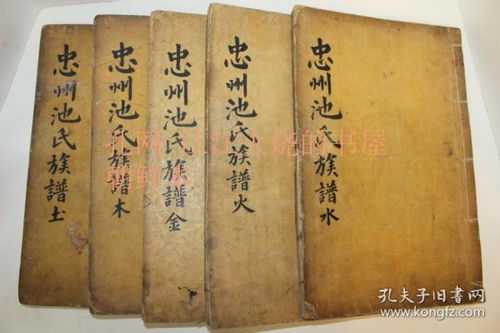 忠州池氏族譜土
忠州池氏族譜木
忠州池氏族譜金
忠州池氏族譜火
忠州池氏族譜水
孔夫子旧书网
www.kongfz.com